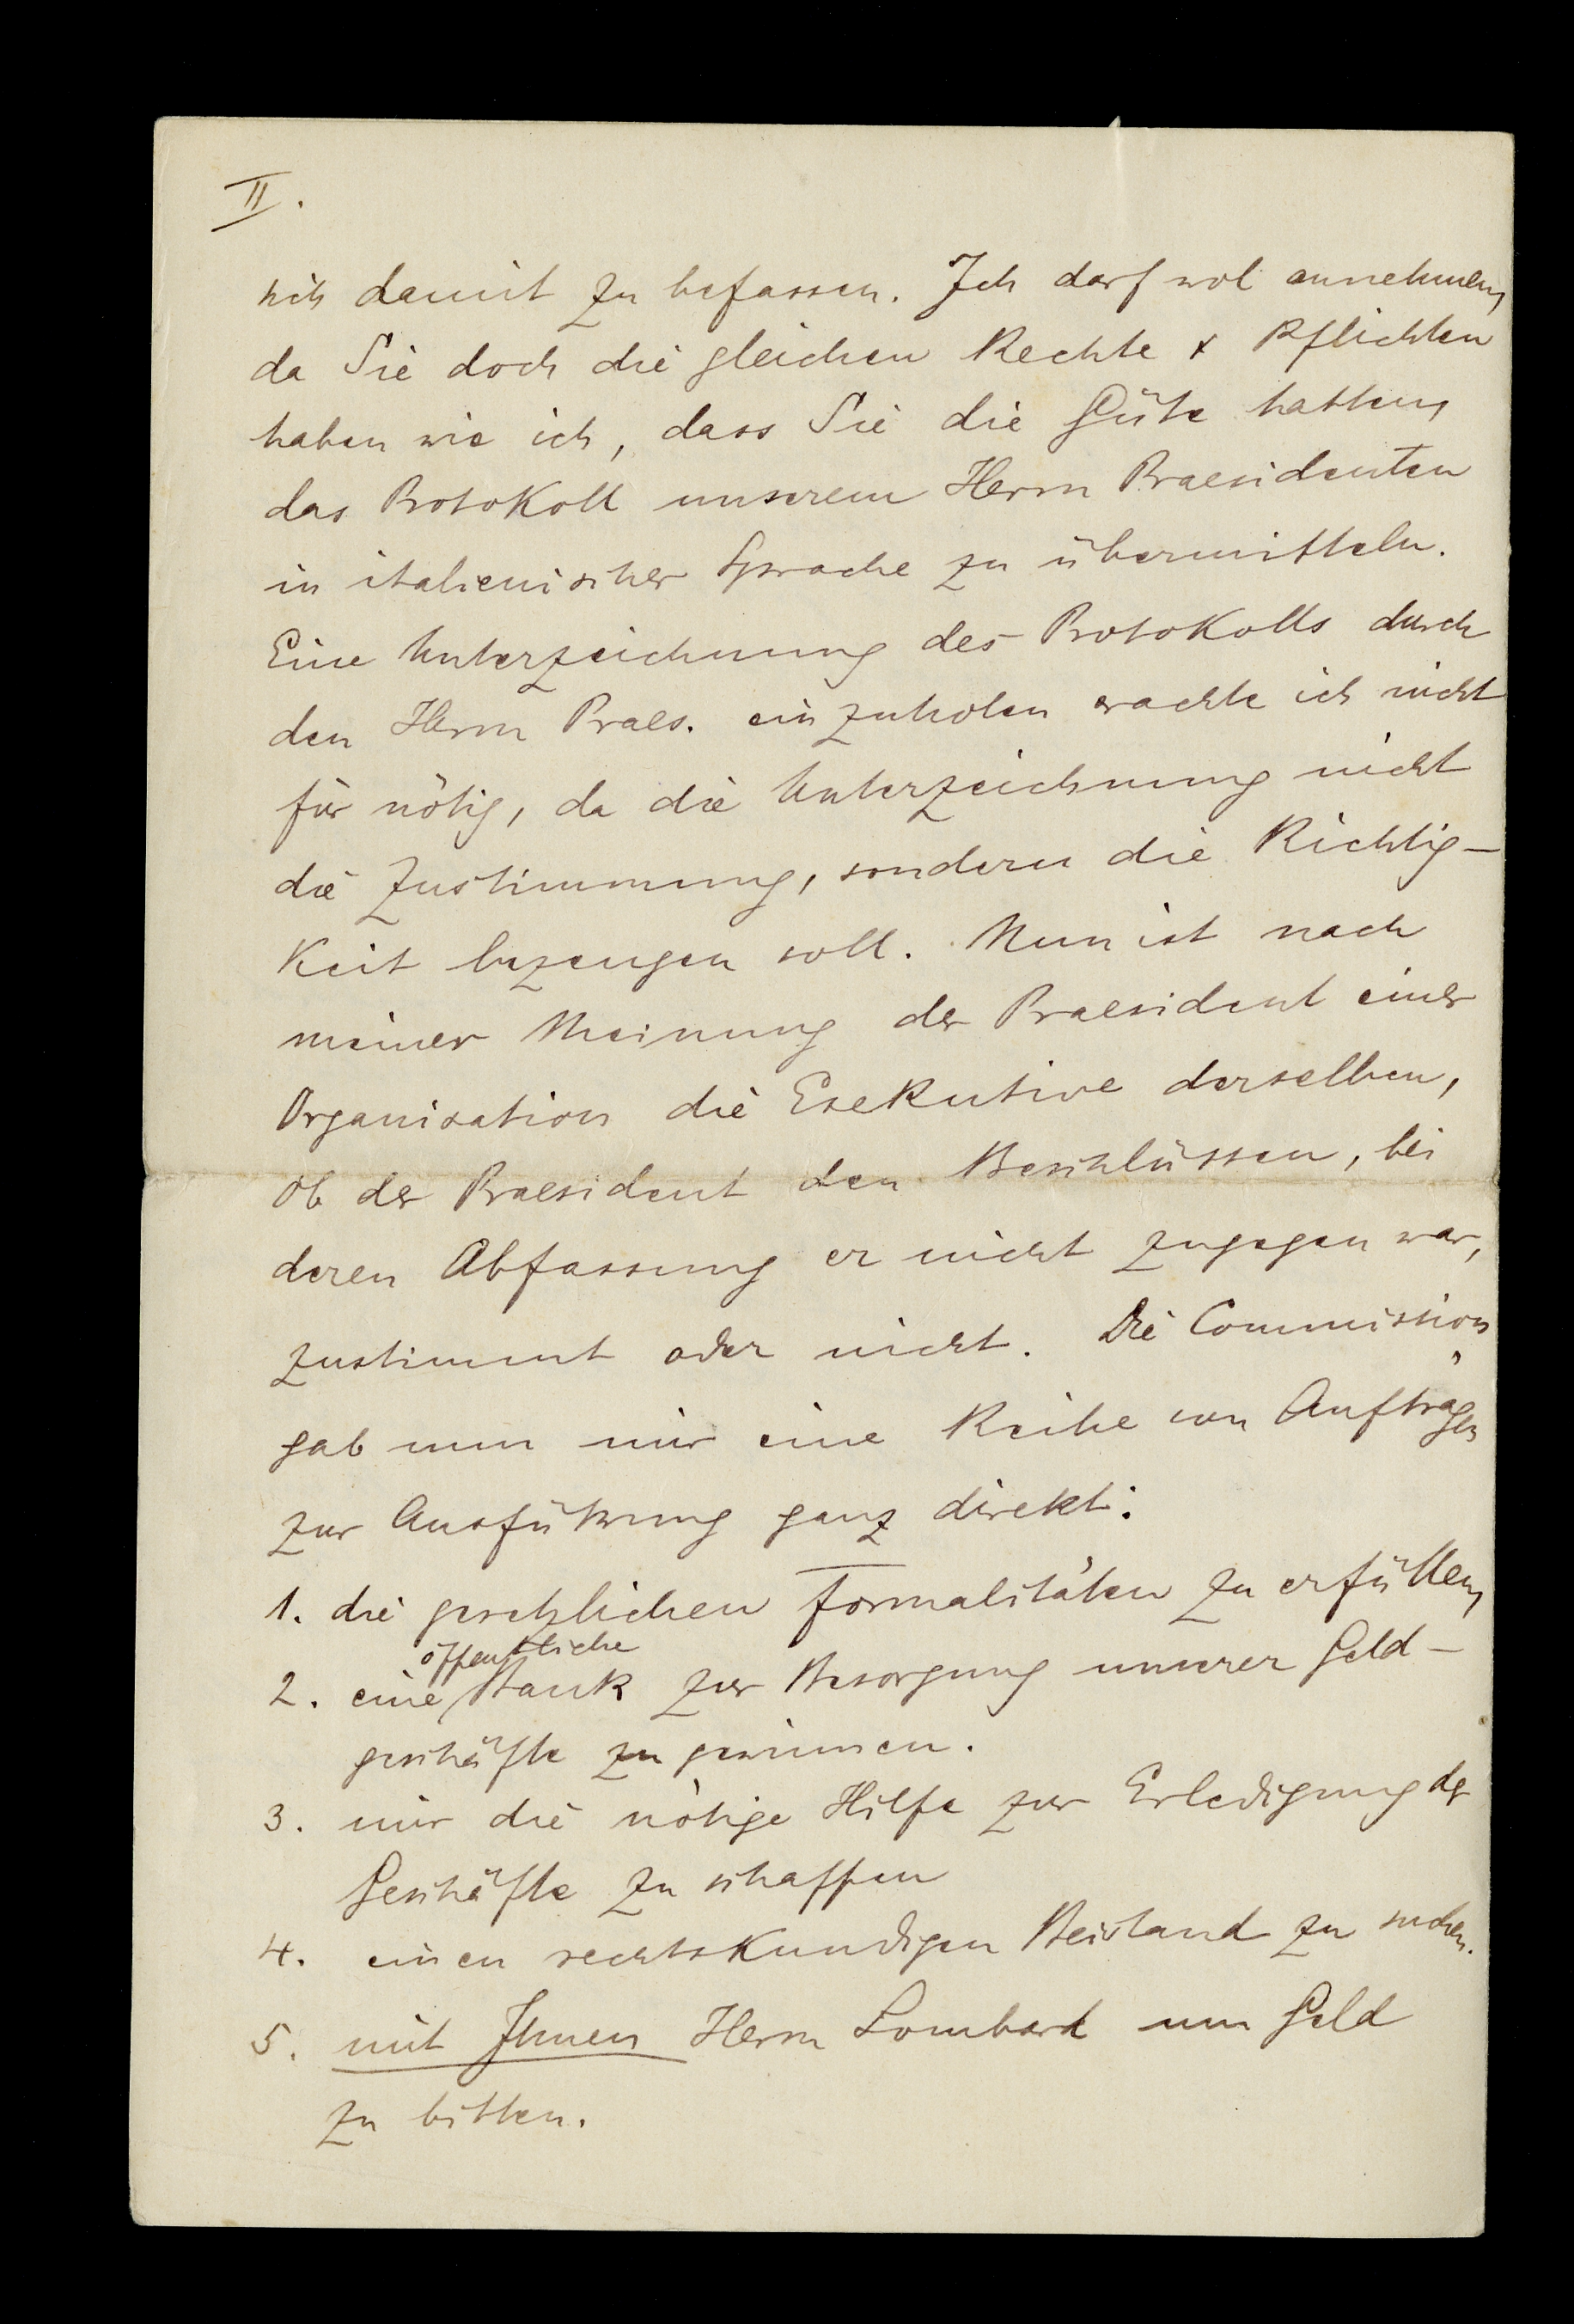 II.
sich damit zu befassen. Ich darf wol annehmen,
da Sie doch die gleichen Rechte & Pflichten
haben wie ich, dass Sie die Güte hatten,
das Protokoll unserem Herrn Praesidenten
in italienischer Sprache zu übermitteln.
Eine Unterzeichnung des Protokolls durch
den Herrn Praes. einzuholen erachte ich nicht
für nötig, da die Unterzeichnung nicht
die Zustimmung, sondern die Richtig-
keit bezeugen soll. Nun ist nach
meiner Meinung der Praesident einer
Organisation die Exekutive derselben,
ob der Praesident den Beschlüssen, bei
deren Abfassung er nicht zugegen war,
zustimmt oder nicht. Die Commission
gab nun mir eine Reihe von Aufträgen
zur Ausführung ganz direkt:
1. die gesetzlichen Formalitäten zu erfüllen,
öffentliche
2. eine Bank zur Besorgung unserer Geld-
geschäfte zu gewinnen.
3. mir die nötige Hilfe zur Erledigung der
Geschäfte zu schaffen
4. einen rechtskundigen Beistand zu suchen.
5. mit Ihnen Herrn Lombard um Geld
zu bitten.